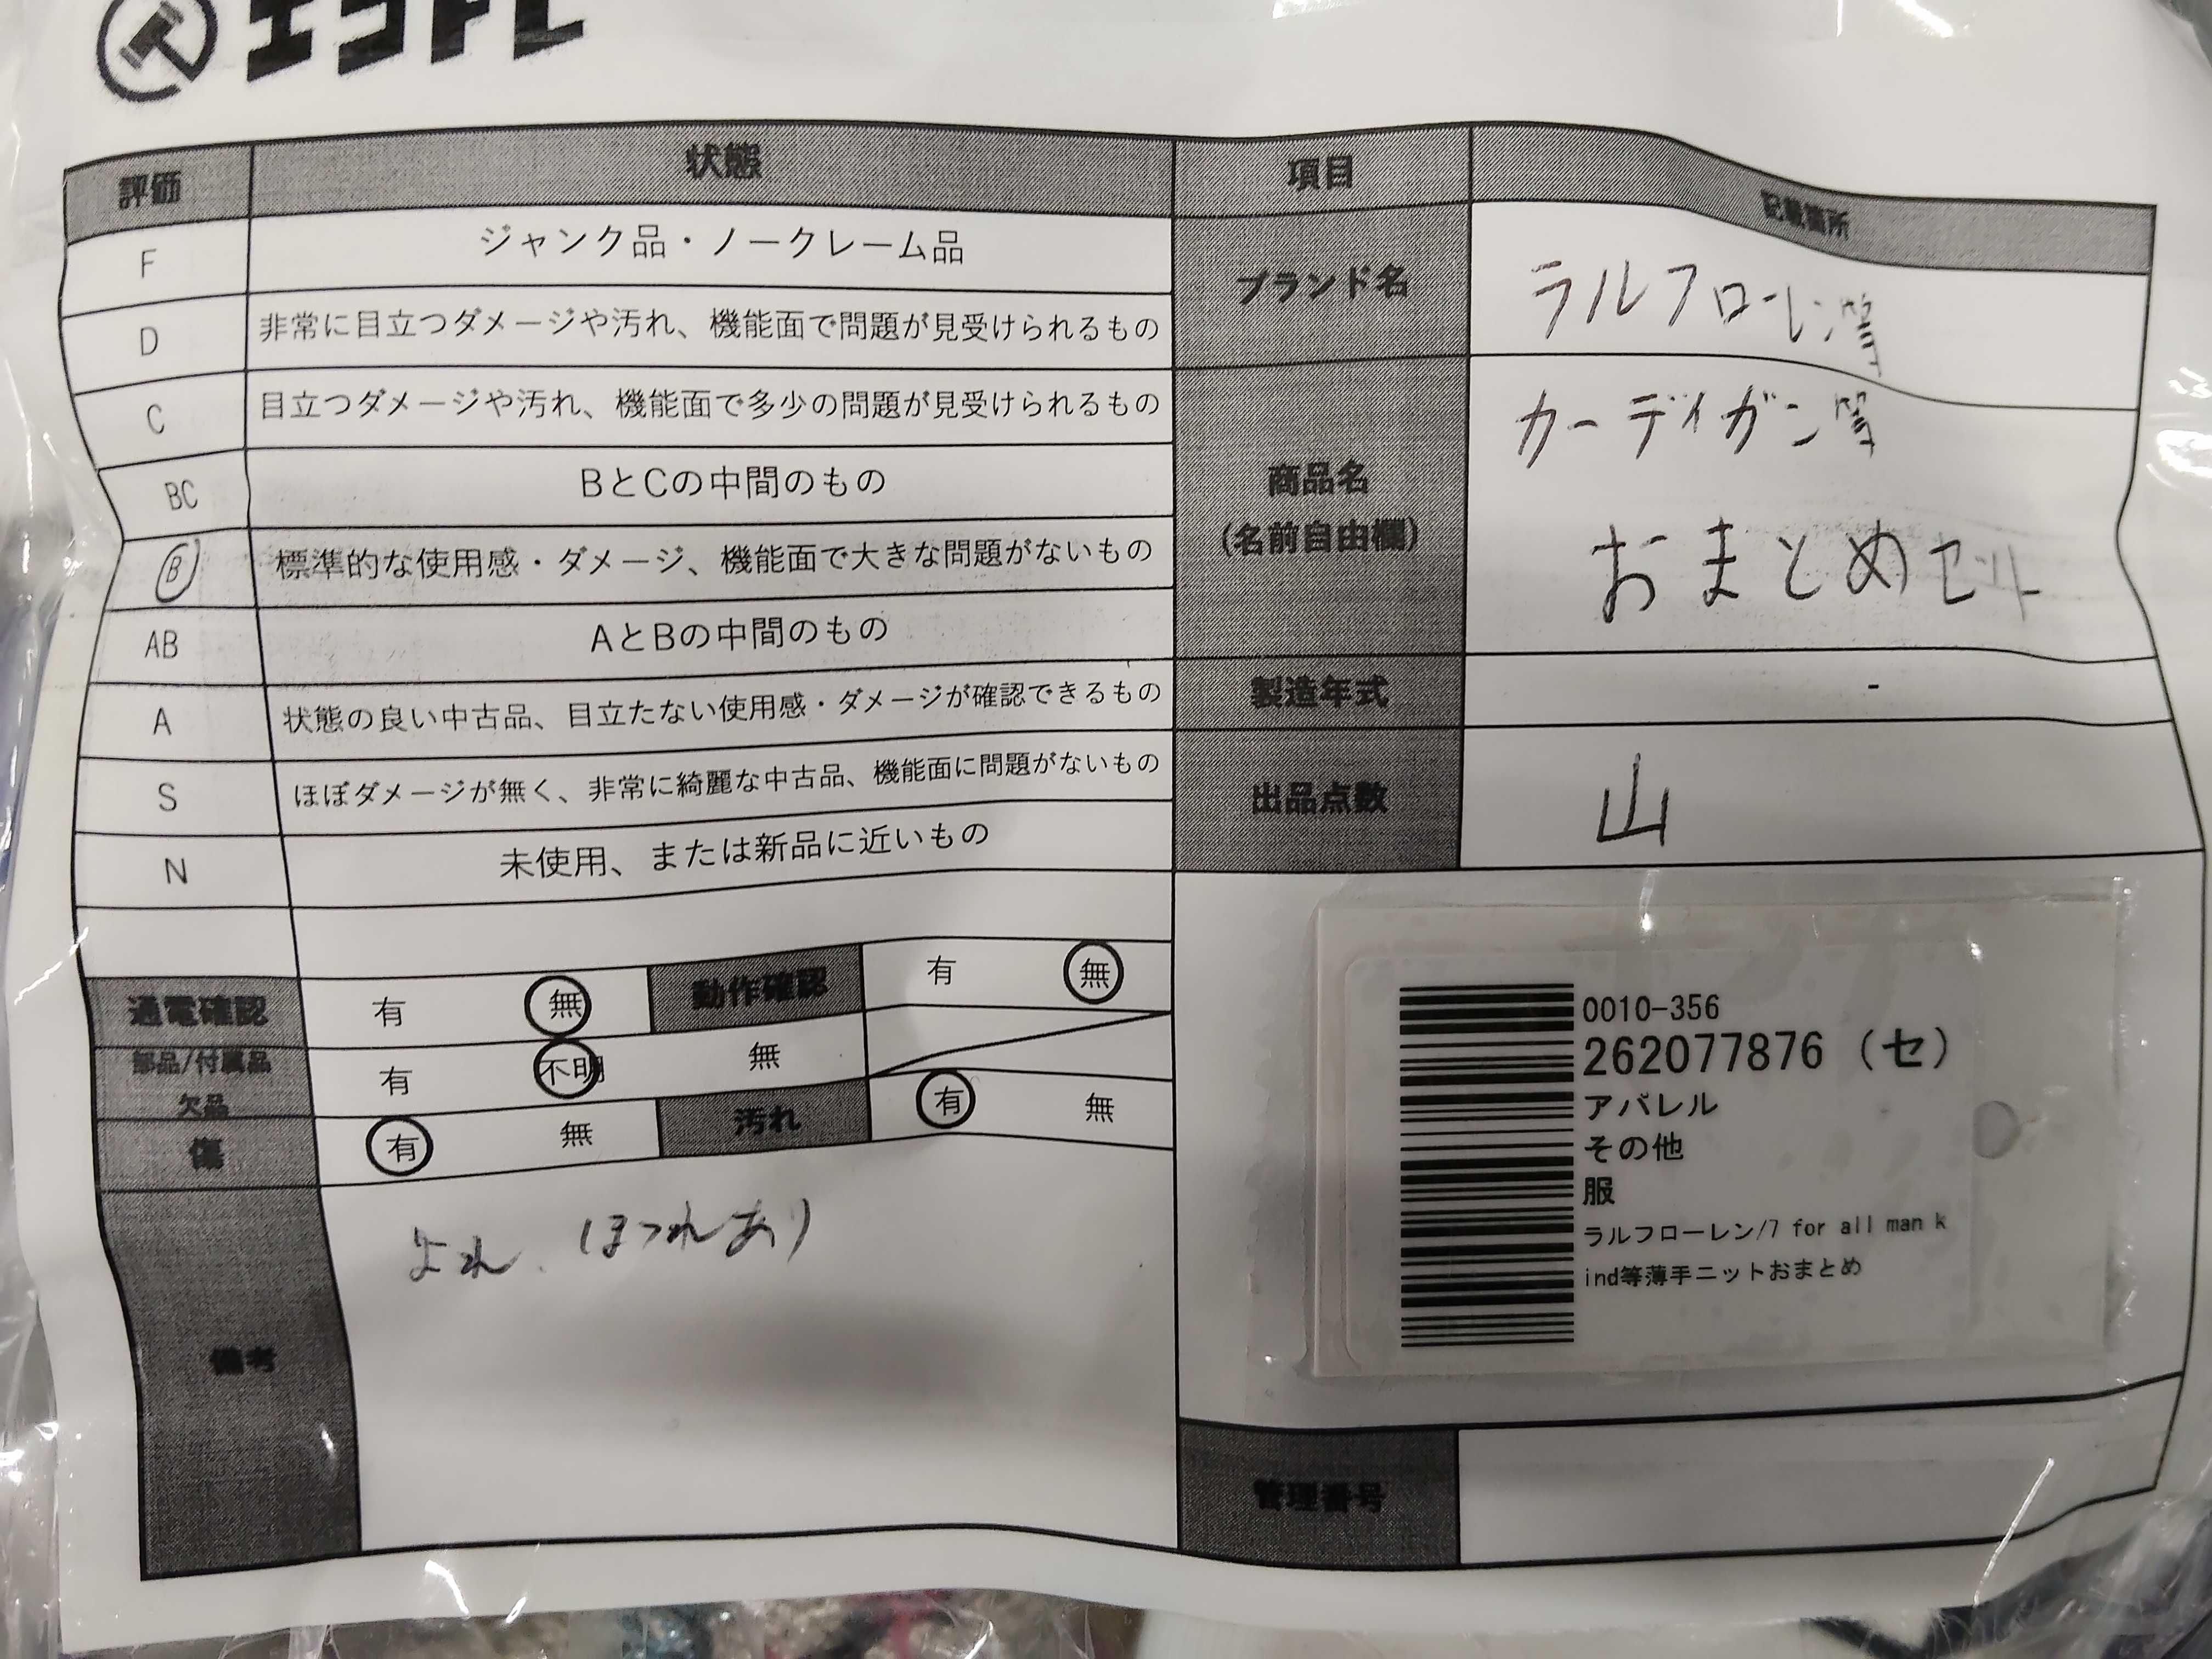 エコトレ
評価 状態 項目 記載箇所
F ジャンク品・ノークレーム品
D 非常に目立つダメージや汚れ、機能面で問題が見受けられるもの
C 目立つダメージや汚れ、機能面で多少の問題が見受けられるもの
BC BとCの中間のもの
B 標準的な使用感・ダメージ、機能面で大きな問題がないもの
AB AとBの中間のもの
A 状態の良い中古品、目立たない使用感・ダメージが確認できるもの
S ほぼダメージが無く、非常に綺麗な中古品、機能面に問題がないもの
N 未使用、または新品に近いもの
ブランド名 ラルフローレン等
商品名
(名前自由欄)
カーディガン等
おまとめセット
製造年式 -
出品点数 山
通電確認 有 無 動作確認 有 無
部品/付属品
欠品
有 不明 無
傷 有 無 汚れ 有 無
備考 よれ、ほつれあり
0010-356
262077876 (セ)
アパレル
その他
服
ラルフローレン/7 for all man k
ind等薄手ニットおまとめ
管理番号